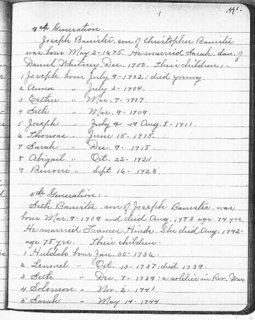 4th Generation
Joseph Banister, son of Christopher Banister
was born May 2-1675. He married Sarah, dau. of
Daniel Whitney Dec. 1700. Their children:
1 Joseph born July 9-1702: died young.
2 Anna " July 2-1704.
3 Esther " Mar. 7-1707.
4 Seth " Mar. 9-1709.
5 Joseph " July 4
6 Thomas " June 15-1713.
7 Sarah " Dec. 9-1715.
8 Abigail " Oct. 22-1721.
9 " Sept 16-1723.
5th Generation:
Seth Banister, son of Joseph Banister was
born Mar. 9-1709 and died Aug. age 74 yrs.
He married Hinds. She died Aug. 1792
age 75 yrs. Their children:
1 Huldah born Jan. 30-1736.
2 Lemuel " Oct. 13-1737: died 1739.
3 Seth " Dec. 7-1739: a soldier in Rev. War.
4 Solomon " Nov. 2-1741.
5 Sarah " May 14-1744.